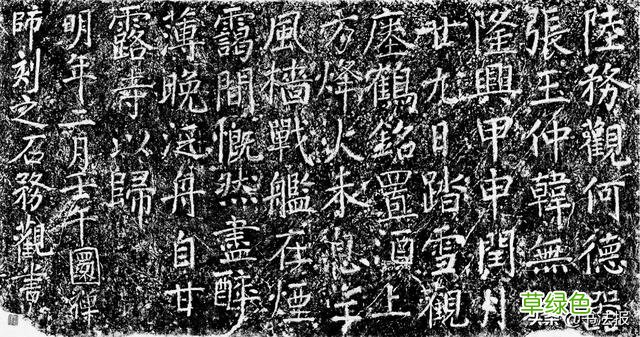 陸務觀何德器
張玉仲韓無
隆興甲申閏月
廿九日踏雪觀
瘞鶴銘置酒上
方烽火未息望
風檣戰艦在煙
靄間慨然盡醉
薄晚泛舟自甘
露寺以歸
明年二月壬午圜禪
師刻之石務觀書
草绿色
头条@书法报